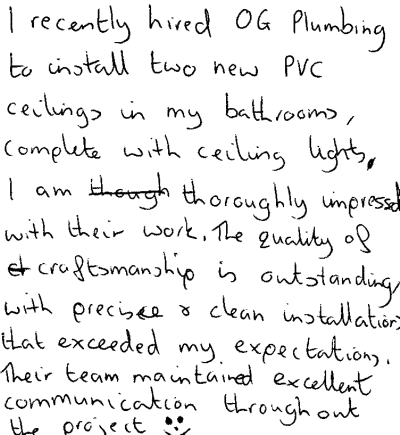 I recently hired OG Plumbing
to install two new PVC
ceilings in my bathrooms,
complete with ceiling lights,
I am though thoroughly impressed
with their work. The quality of
craftsmanship is outstanding,
with precise & clean installations
that exceeded my expectations.
Their team maintained excellent
communication throughout
the project